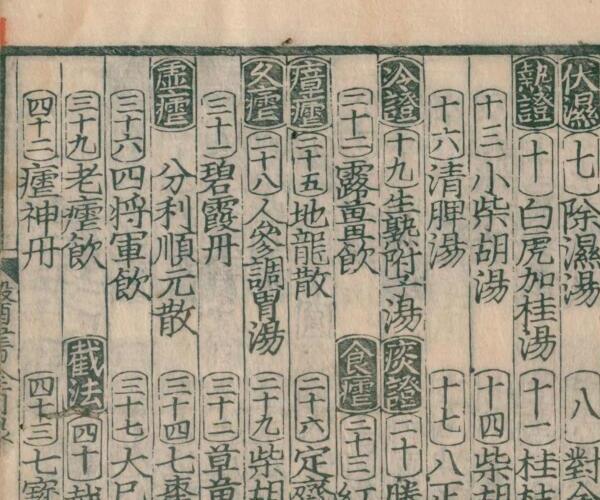 伏濕 七 除濕湯 八 對金
熱證 十 白虎加桂湯 十一 桂
十三 小柴胡湯 十四 柴胡
十六 清脾湯 十七 八正
冷證 十九 生熟附子湯 痰證 二十 勝
二十二 露薑飲 食瘧 二十三 紅
瘴瘧 二十五 地龍散 二十六 定齋
久瘧 二十八 人參調胃湯 二十九 柴胡
三十一 碧霞丹 三十二 草
虛瘧 分利順元散 三十四 七棗
三十六 四將軍飲 三十七 大
三十九 老瘧飲 截法 四十
四十二 瘧神丹 四十三 七寶